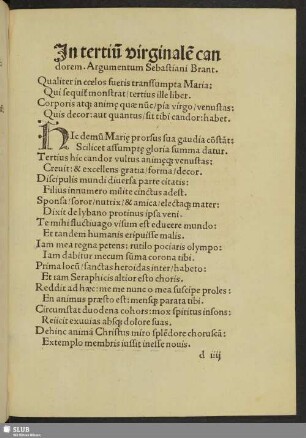 In tertiū virginalē can
dorem. Argumentum Sebastiani Brant.
Qualiter in cœlos fueris transsumpta Maria:
Qui sequiť monstrat/tertius ille liber.
Corporis atq; animę quæ nūc/pia virgo/venustas:
Quis decor: aut quantus/sit tibi candor: habet.
HIc demū Marię prorsus sua gaudia cōstāt:
Scilicet assumptę gloria summa datur.
Tertius hic candor vultus animęq; venustas:
Creuit: & excellens gratia/forma/decor.
Discipulis mundi diuersa parte citatis:
Filius innumero milite cinctus adest.
Sponsa/soror/nutrix/& amica/electaq; mater:
Dixit de lybano protinus ipsa veni.
Te mihi fluctiuago visum est educere mundo:
Et tandem humanis eripuisse malis.
Iam mea regna petens: rutilo pociaris olympo:
Iam dabitur mecum sūma corona tibi.
Prima locū/sanctas heroidas inter/habeto:
Et iam Seraphicis altior esto choris.
Reddit ad hæc: me me nunc o mea suscipe proles:
En animus præsto est: mensq; parata tibi.
Circūstat duodena cohors: mox spiritus insons:
Reiicit exuuias absq; dolore suas.
Dehinc animā Christus miro splēdore choruscā:
Extemplo membris iussit inesse nouis.
d iiij
SLUB